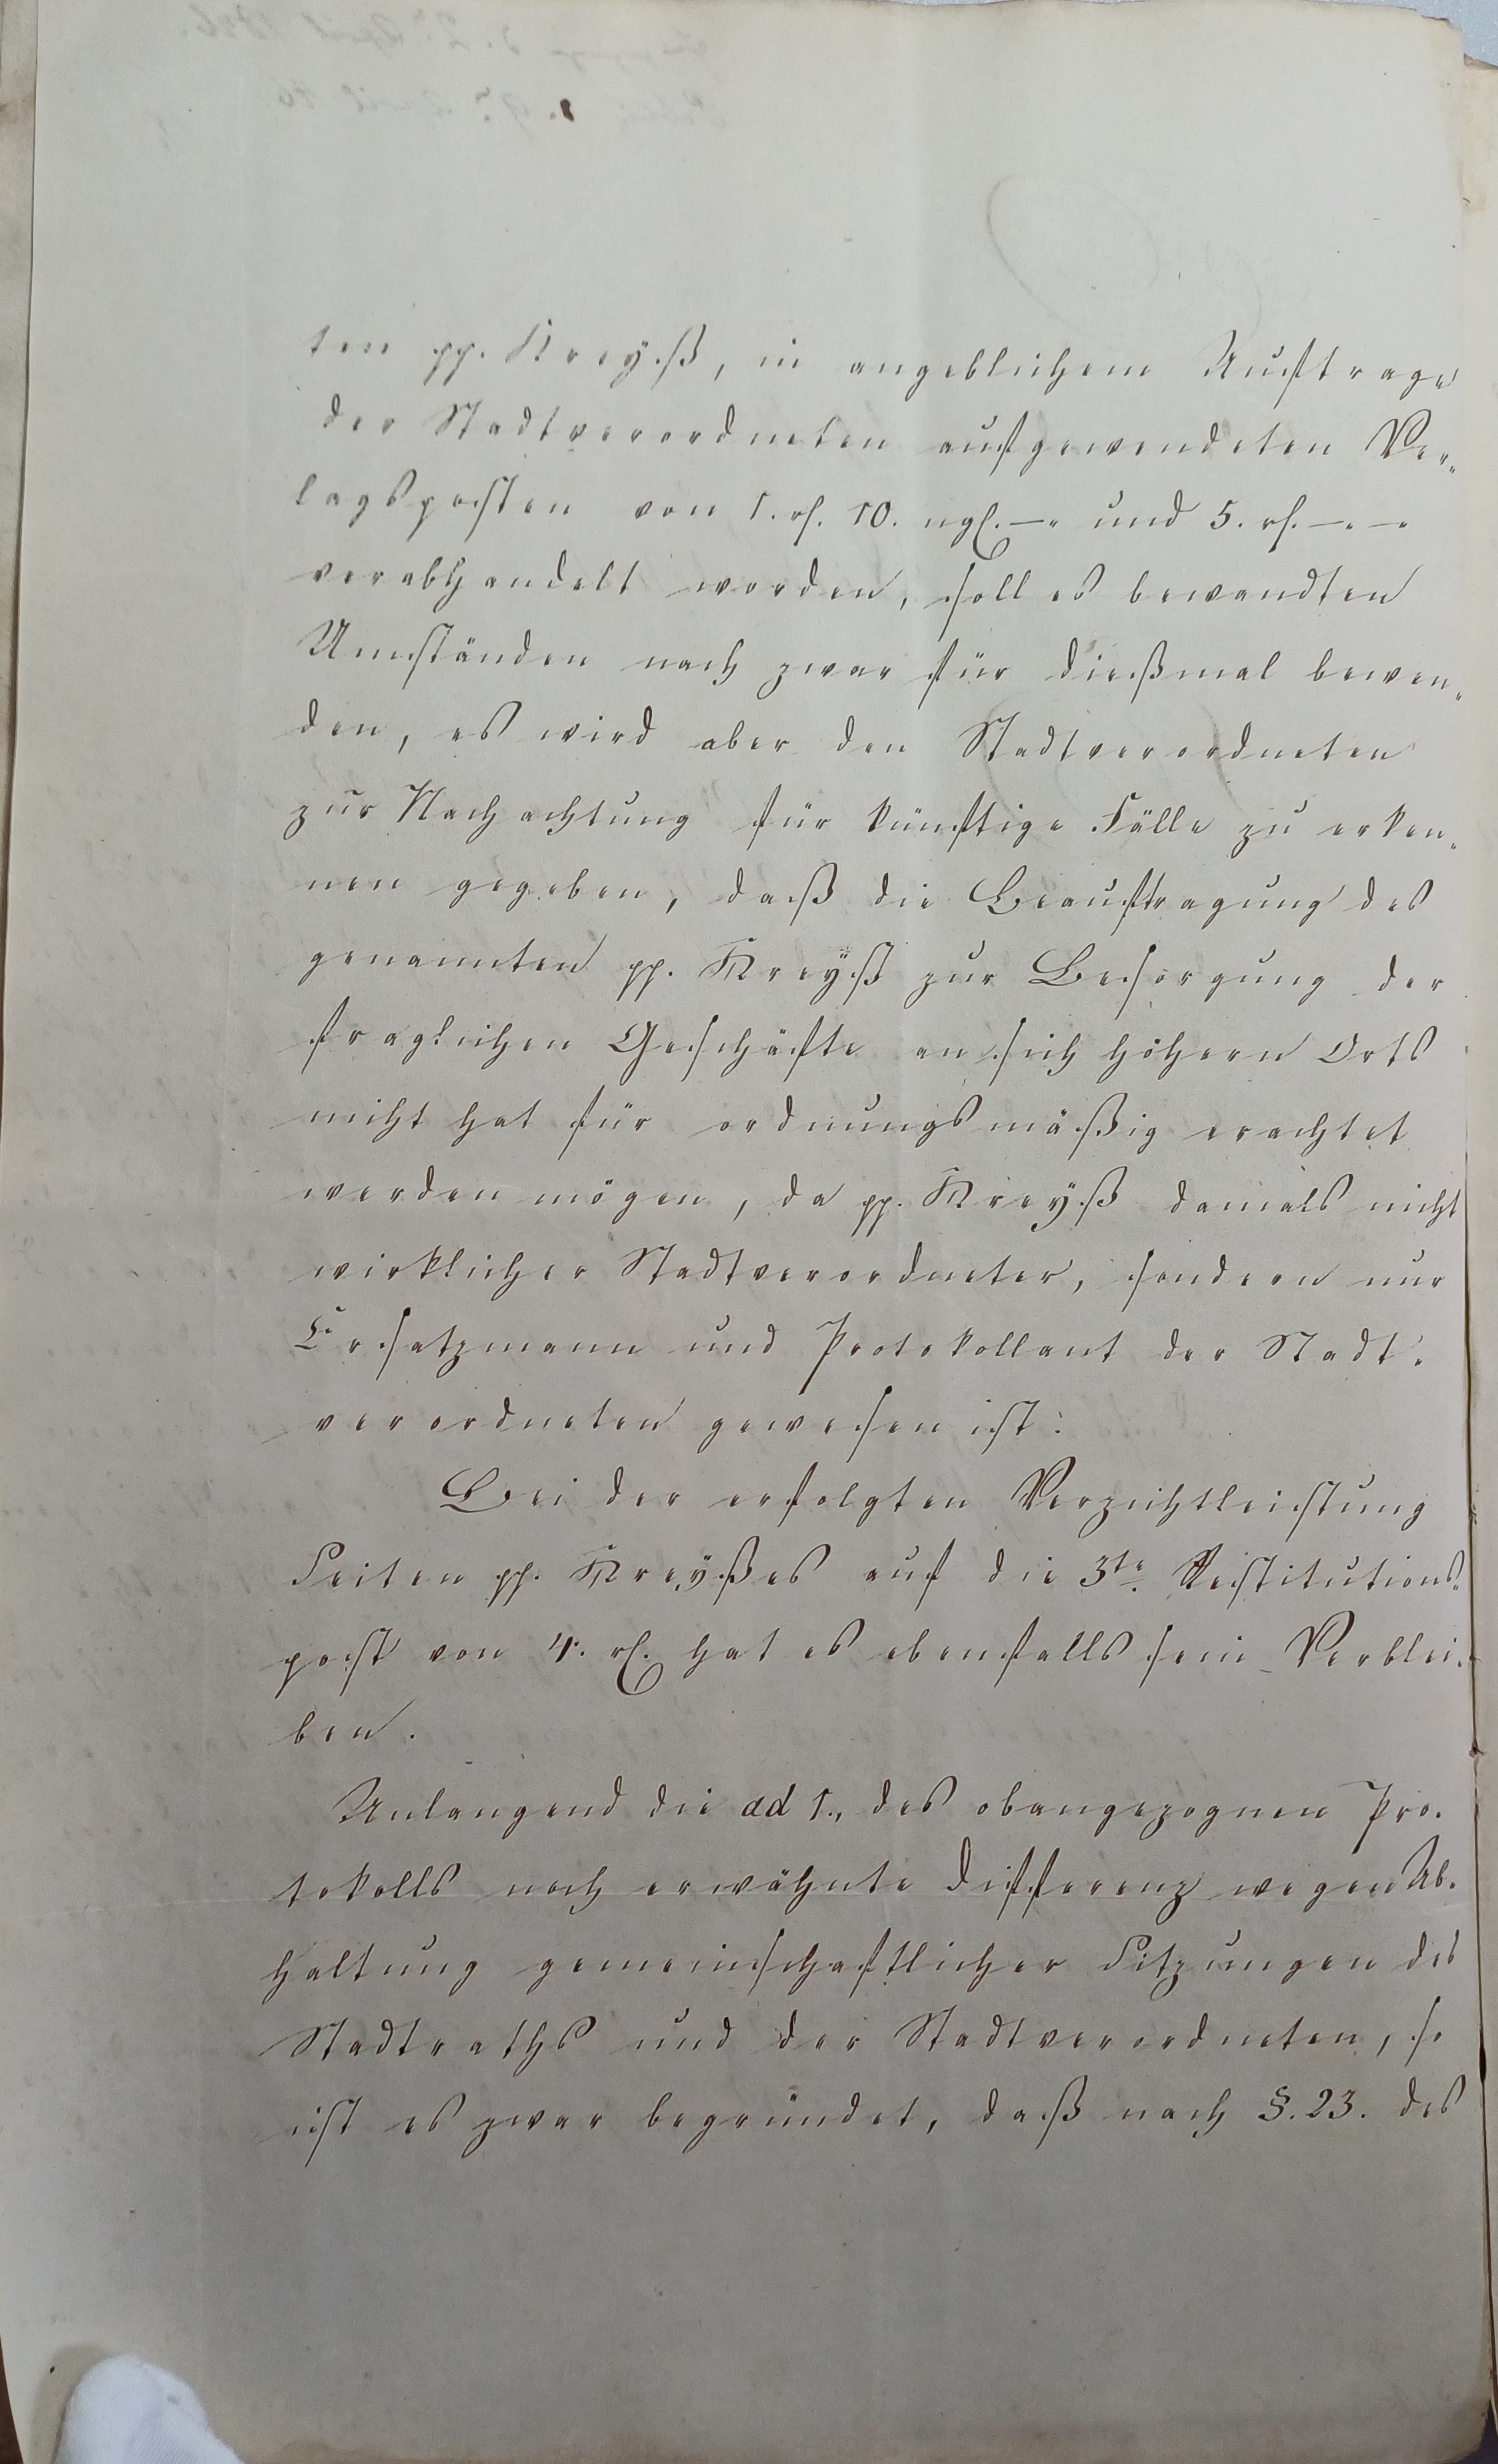 ten pp. Kreyß, in angeblichem Auftrage
der Stadtverordneten aufgewendeten Ver-
lagsposten von 1. rl. 10. ngl. —. und 5. rl. —. —.
verabhandelt worden, soll es bewandten
Umständen nach zwar für dießmal bewen-
den, es wird aber den Stadtverordneten
zur Nachachtung für künftige Fälle zu erken-
nen gegeben, daß die Beauftragung des
genannten pp. Kreyß zur Besorgung der
fraglichen Geschäfte an sich höhern Orts
nicht hat für ordnungsmäßig erachtet
werden mögen, da pp. Kreyß damals nicht
wirklicher Stadtverordneter, sondern nur
Ersatzmann und Protokollant der Stadt-
verordneten gewesen ist.
Bei der erfolgten Verzichtleistung
Seiten pp. Kreyßes auf die 3te. Restitutions-
post von 4. rl. hat es ebenfalls sein Verblei-
ben.
Anlangend die ad 1., des obangezognen Pro-
tokolls noch erwähnte Differenz wegen Ab-
haltung gemeinschaftlicher Sitzungen des
Stadtraths und der Stadtverordneten, so
ist es zwar begründet, daß nach §. 23. des